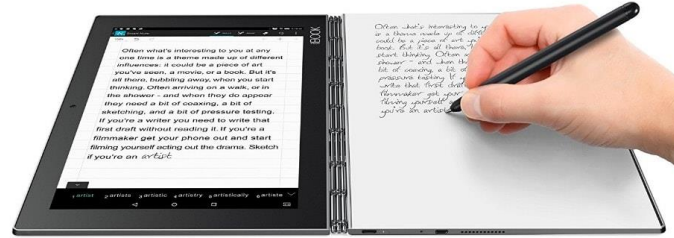 Often what's interesting to you at any
one time is a theme made up of different
influences: it could be a piece of art
you've seen, a movie, or a book. But it's
all there, bubbling away, when you start
thinking. Often arriving on a walk, or in
the shower - and when they do appear
they need a bit of coaxing, a bit of
sketching, and a bit of pressure testing.
If you're a writer you need to write that
first draft without reading it. If you're a
filmmaker get your phone out and start
filming yourself acting out the drama. Sketch
if you're an artist
1 artist 2 artists 3 artistic 4 artistry 5 artistically 6 artiste
Often what's interesting to
is a theme made up of
could be a piece of art
book. But it's all there,
start thinking. Often
shower - and when the
bit of coaxing, a bit of
pressure testing. If
write that first draf
filmmaker get your
filming yourself
you're an artist